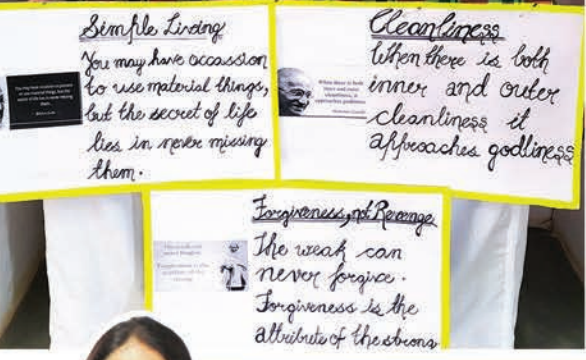 Simple Living
You may have occassion
to use material things,
but the secret of life
lies in never missing
them.
Cleanliness
When there is both
inner and outer
cleanliness it
approaches godliness
Forgiveness, not Revenge
The weak can
never forgive.
Forgiveness is the
attribute of the strong